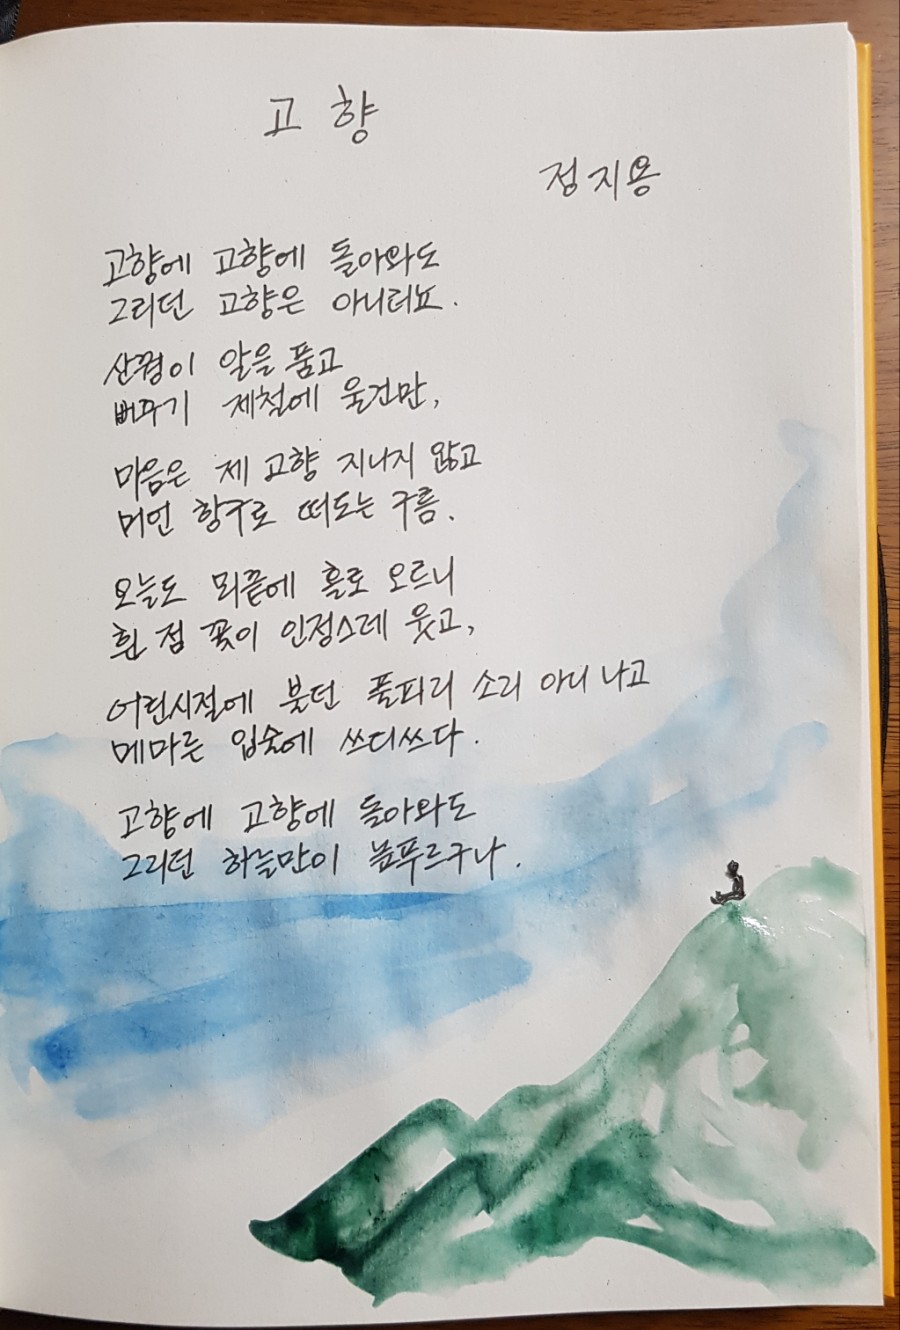 고향
정지용
고향에 고향에 돌아와도
그리던 고향은 아니러뇨.
산꿩이 알을 품고
뻐꾸기 제철에 울건만,
마음은 제 고향 지니지 않고
머언 항구로 떠도는 구름.
오늘도 뫼끝에 홀로 오르니
흰 점 꽃이 인정스레 웃고,
어린시절에 불던 풀피리 소리 아니 나고
메마른 입술에 쓰디쓰다.
고향에 고향에 돌아와도
그리던 하늘만이 높푸르구나.